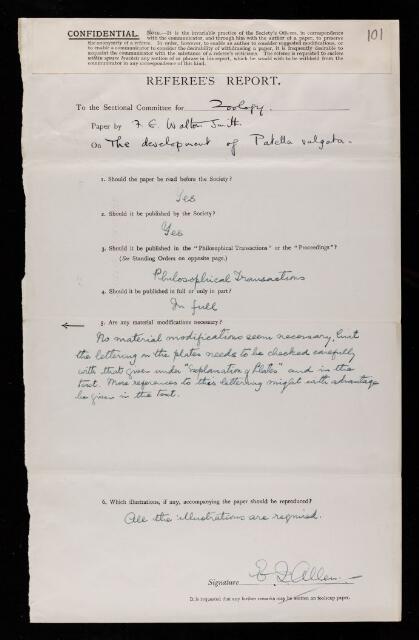 101
CONFIDENTIAL. NOTE.—It is the invariable practice of the Society's Officers, in correspondence
with the communicator, and through him with the author of a paper, to preserve
the anonymity of a referee. In order, however, to enable an author to consider suggested modifications, or
to enable a communicator to consider the desirability of withdrawing a paper, it is frequently desirable to
acquaint the communicator with the substance of a referee's criticisms. The referee is requested to enclose
within square brackets any section of or phrase in his report, which he would wish to be withheld from the
communicator in any correspondence of this kind.
REFEREE'S REPORT.
To the Sectional Committee for Zoology.
Paper by F. G. Walton Smith.
On The development of Patella vulgata.
1. Should the paper be read before the Society?
Yes
2. Should it be published by the Society?
Yes
3. Should it be published in the "Philosophical Transactions" or the "Proceedings"?
(See Standing Orders on opposite page.)
Philosophical Transactions
4. Should it be published in full or only in part?
In full
5. Are any material modifications necessary?
No material modifications seem necessary, but
the lettering on the plates needs to be checked carefully
with that given under "Explanation of Plates" and in the
text. More references to this lettering might with advantage
be given in the text.
6. Which illustrations, if any, accompanying the paper should be reproduced?
All the illustrations are required.
Signature E. J. Allen
It is requested that any further remarks may be written on foolscap paper.